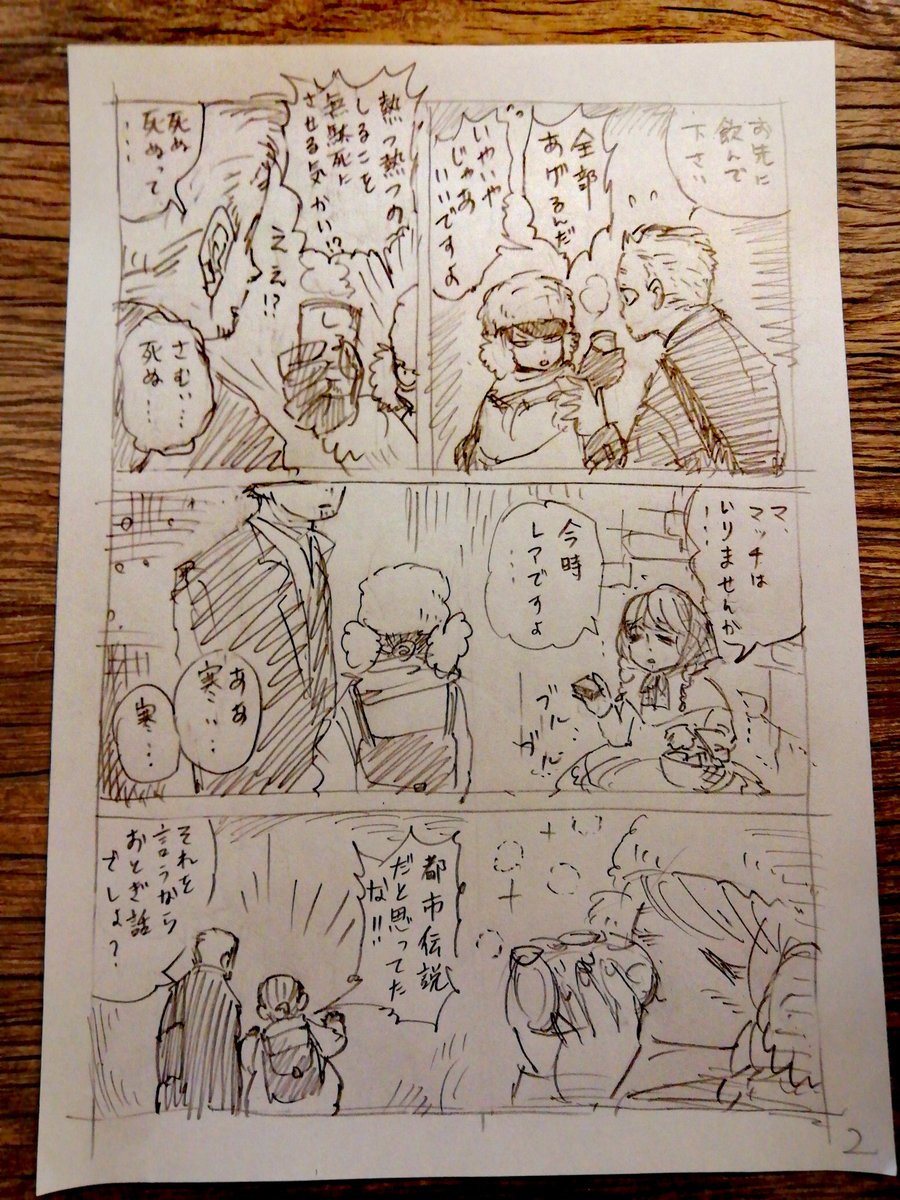 お先に
飲んで
下さい
全部
あげるんだ
いやいや
じゃあ
いいですよ
熱つ熱つの
しるこを
無駄死に
させる気かい!?
ええ!?
死ぬ
死ぬって
…
さむい…
死ぬ…
マ、
マッチは
いりませんか
…
今時
レアですよ
…
ブルルル
ああ
寒い…
寒…
都市伝説
だと思ってた
な!!
それを
言うなら
おとぎ話
でしょ?
2